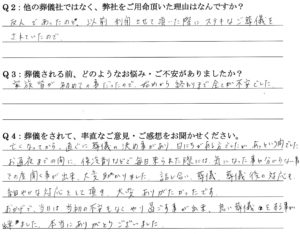 Q2：他の葬儀社ではなく、弊社をご用命頂いた理由はなんですか？
友人であったので、以前利用させて頂いた際にステキなご葬儀を
されていたので。
Q3：葬儀される前、どのようなお悩み・ご不安がありましたか？
家族葬が初めての事だったので、始めから終りまで全てが不安でした。
Q4：葬儀をされて、率直なご意見・ご感想をお聞かせください。
亡くなってから、直ぐに葬儀の決め事があり
お通夜までの間に、保冷剤などで毎日来られた際には、気になった事
その度聞く事が出来、大変助かりました。話し合い、葬儀、葬儀後の対応も
細やかな対応として頂き、大変ありがたかったです。
おかげで、当日は当初の不安もなくやり過ごす事が出来、良い葬儀
本当にありがとうございました。